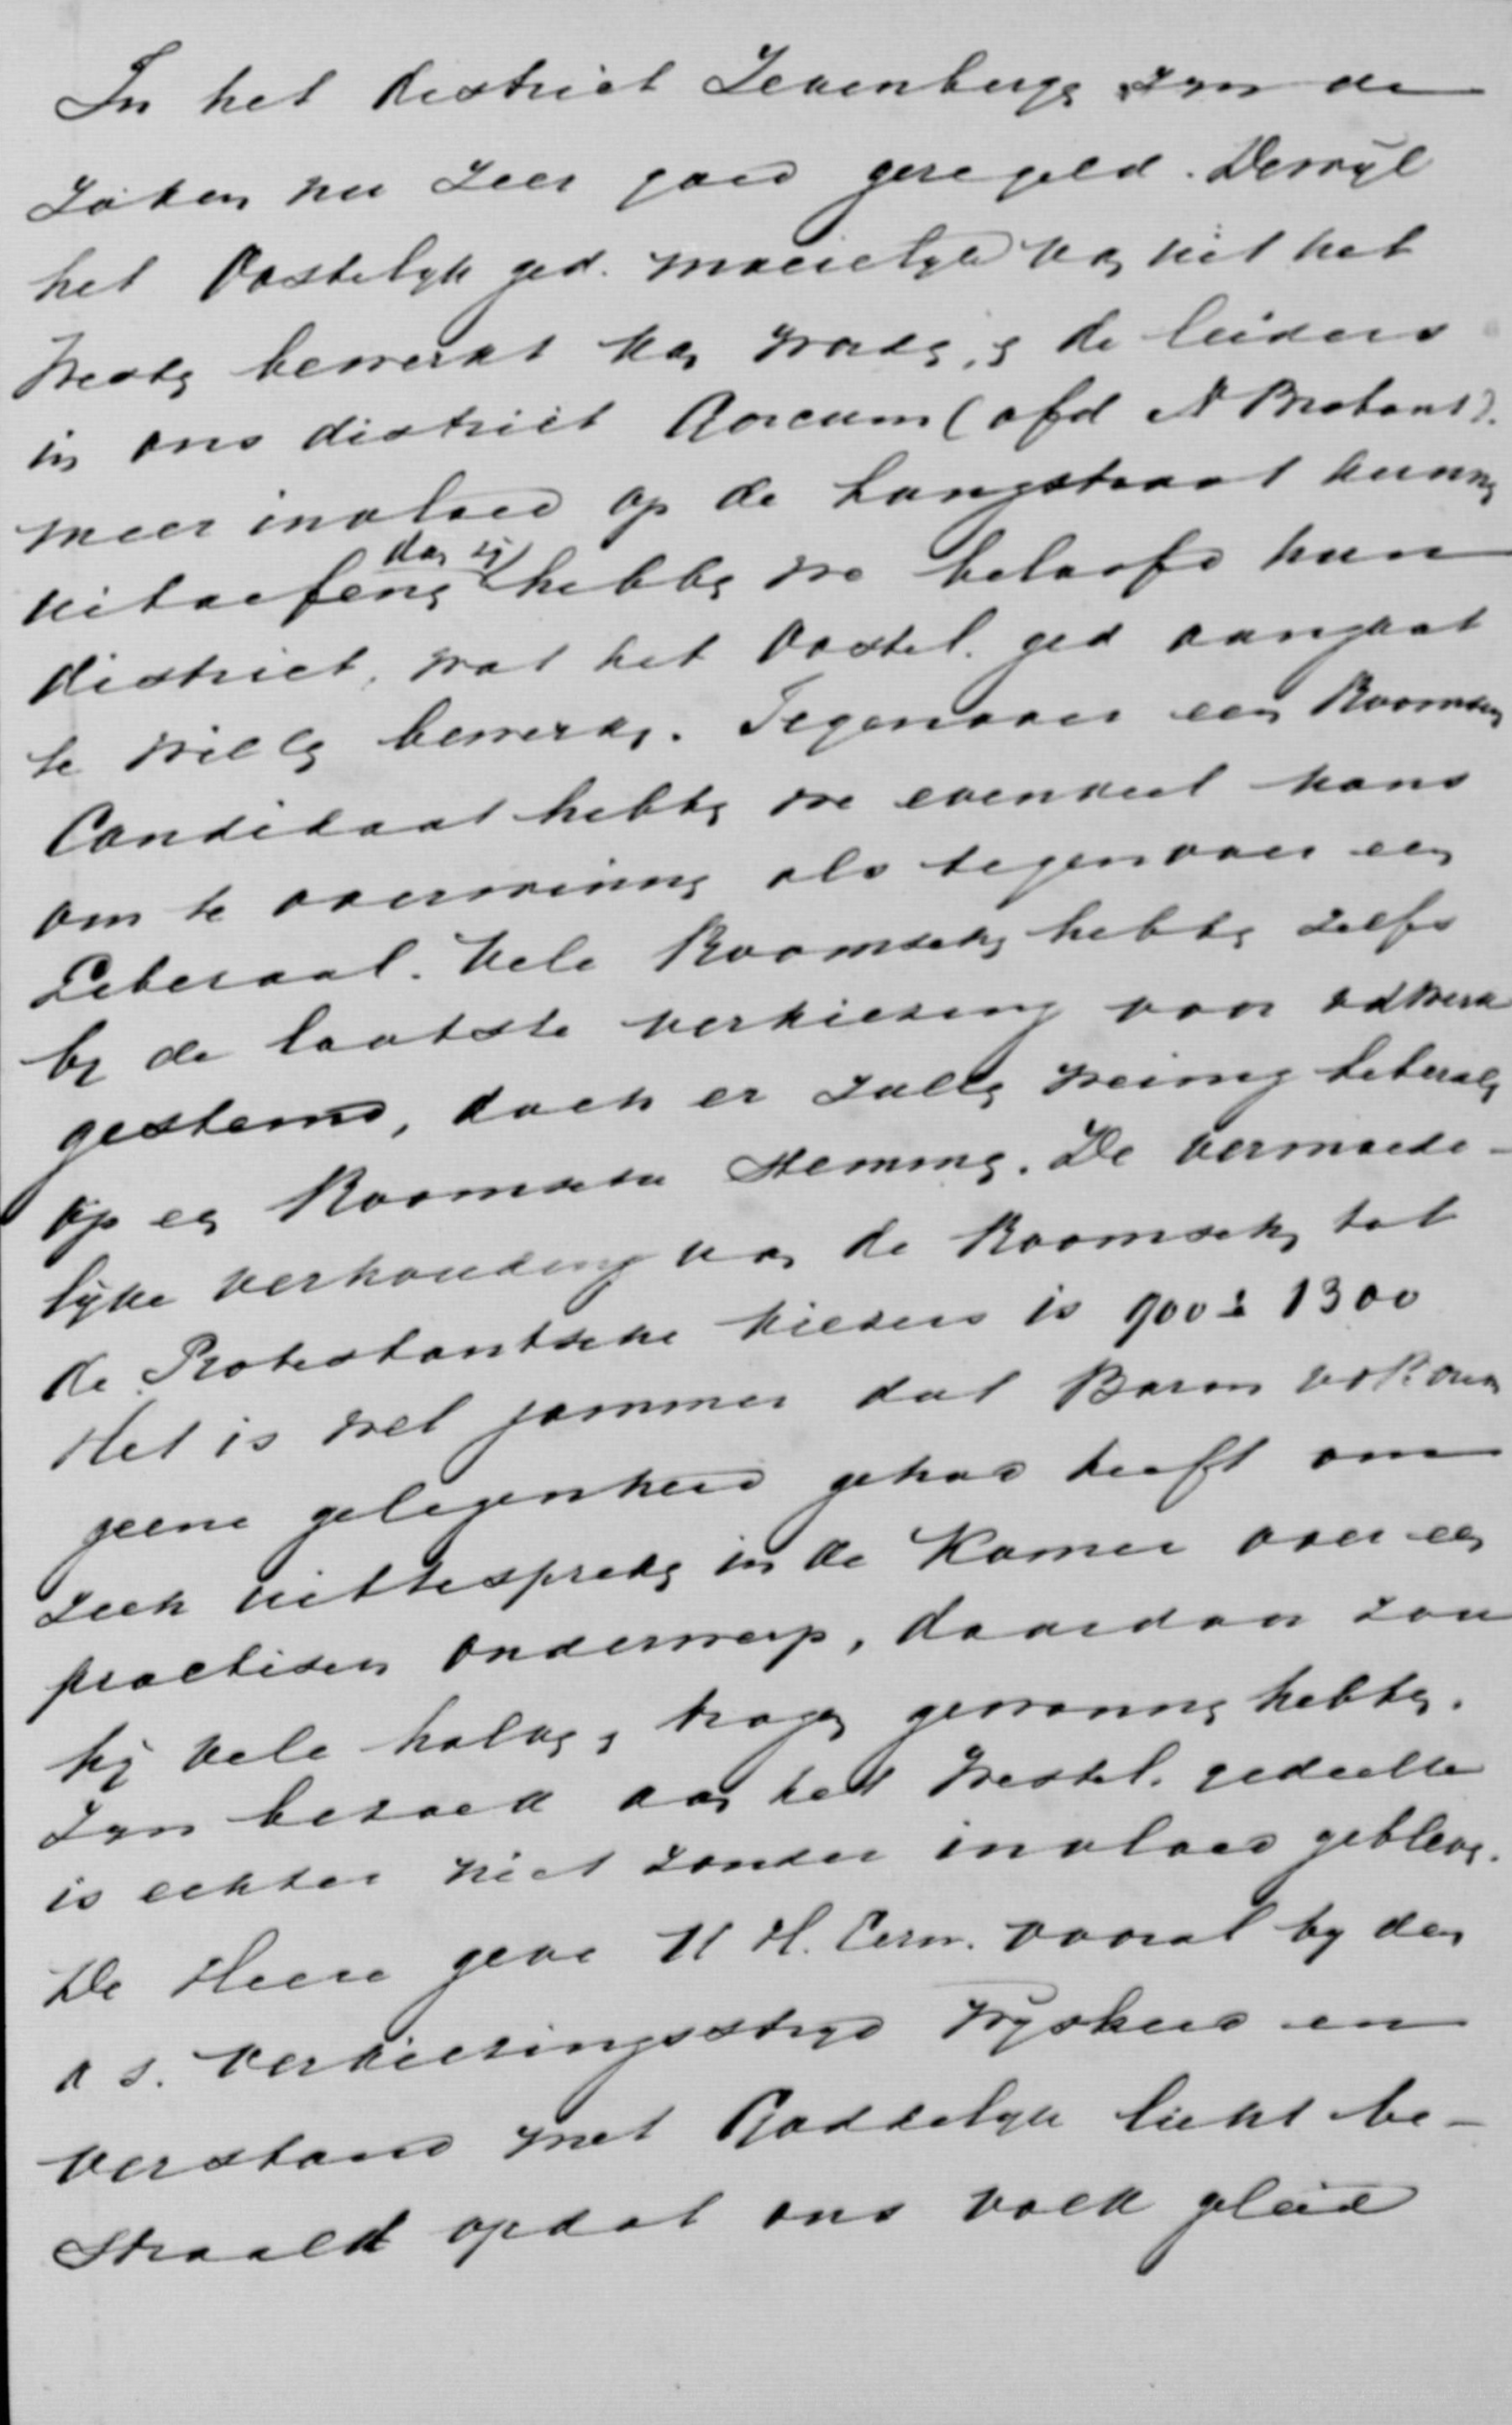 In het district Zevenberge zyn de
zaken nu zeer goed geregeld. Derwyl
het Oostelyk ged. moeielyk van uit het
Westen bewerkt kan worden, en de leiders
in ons district Gorcum (afd N Brabant).
meer invloed op de Langstraat kunnen
uitoefenen dan zij hebben we beloofd hun
district, wat het Oostel. ged aangaat
te willen bewerken. Tegenover een Roomschen
Candidaat hebben we evenveel kans
om te overwinnen als tegenover een
Liberaal. Vele Roomschen hebben zelfs
by de laatste verkiezing voor
gestemd, doch er zullen weinig liberalen
op een Roomsche stemmen. De vermoede-
lyke verhouding van de Roomschen tot
de Protestantsche kiezers is 900 : 1300
Het is wel jammer dat Baron
geene gelegenheid gehad heeft om
zich uittespreken in de Kamer over een
practisch onderwerp, daardoor zou
hij vele halven, tragen gewonnen hebben.
Zyn bezoek aan het Westel. gedeelte
is echter niet zonder invloed gebleven.
De Heere geve U H. Eerw. vooral by den
a s. verkiezingsstryd wysheid en
verstand met Goddelyk licht be-
straald opdat ons volk geleid